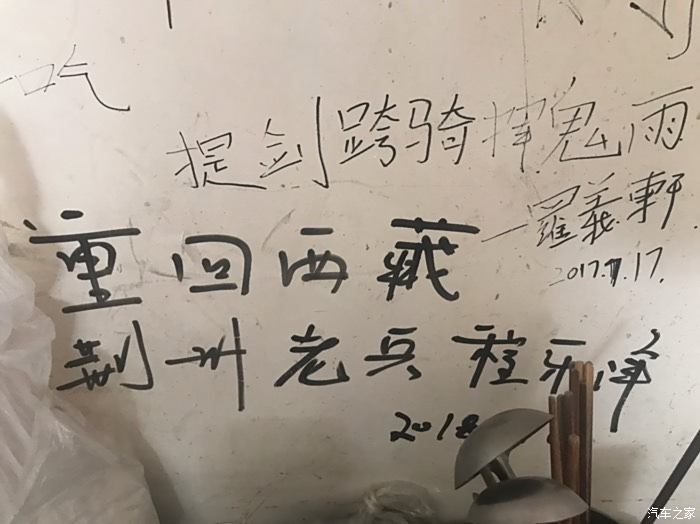 一口气
提剑跨骑挥鬼雨
一羅義軒
2017.7.17.
重回西藏
荆州老兵程
2018
汽车之家